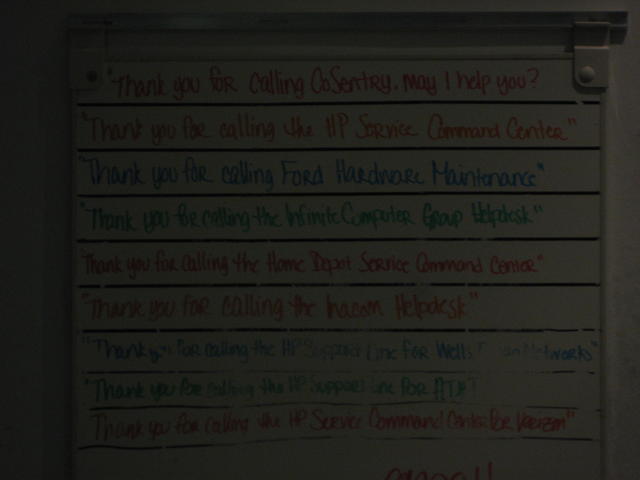 "Thank you for calling CoSentry. may I help you?
"Thank you for calling the HP Service Command Center"
"Thank you for calling Ford Hardware Maintenance"
"Thank you for calling the Infinite Computer Group Helpdesk"
Thank you for calling the Home Depot Service Command Center"
"Thank you for calling the Inacom Helpdesk"
"Thank you for calling the HP Support Line for Wells Networks"
"Thank you for calling the HP Support Line for AT&T
"Thank you for calling the HP Service Command Center for Verizon"